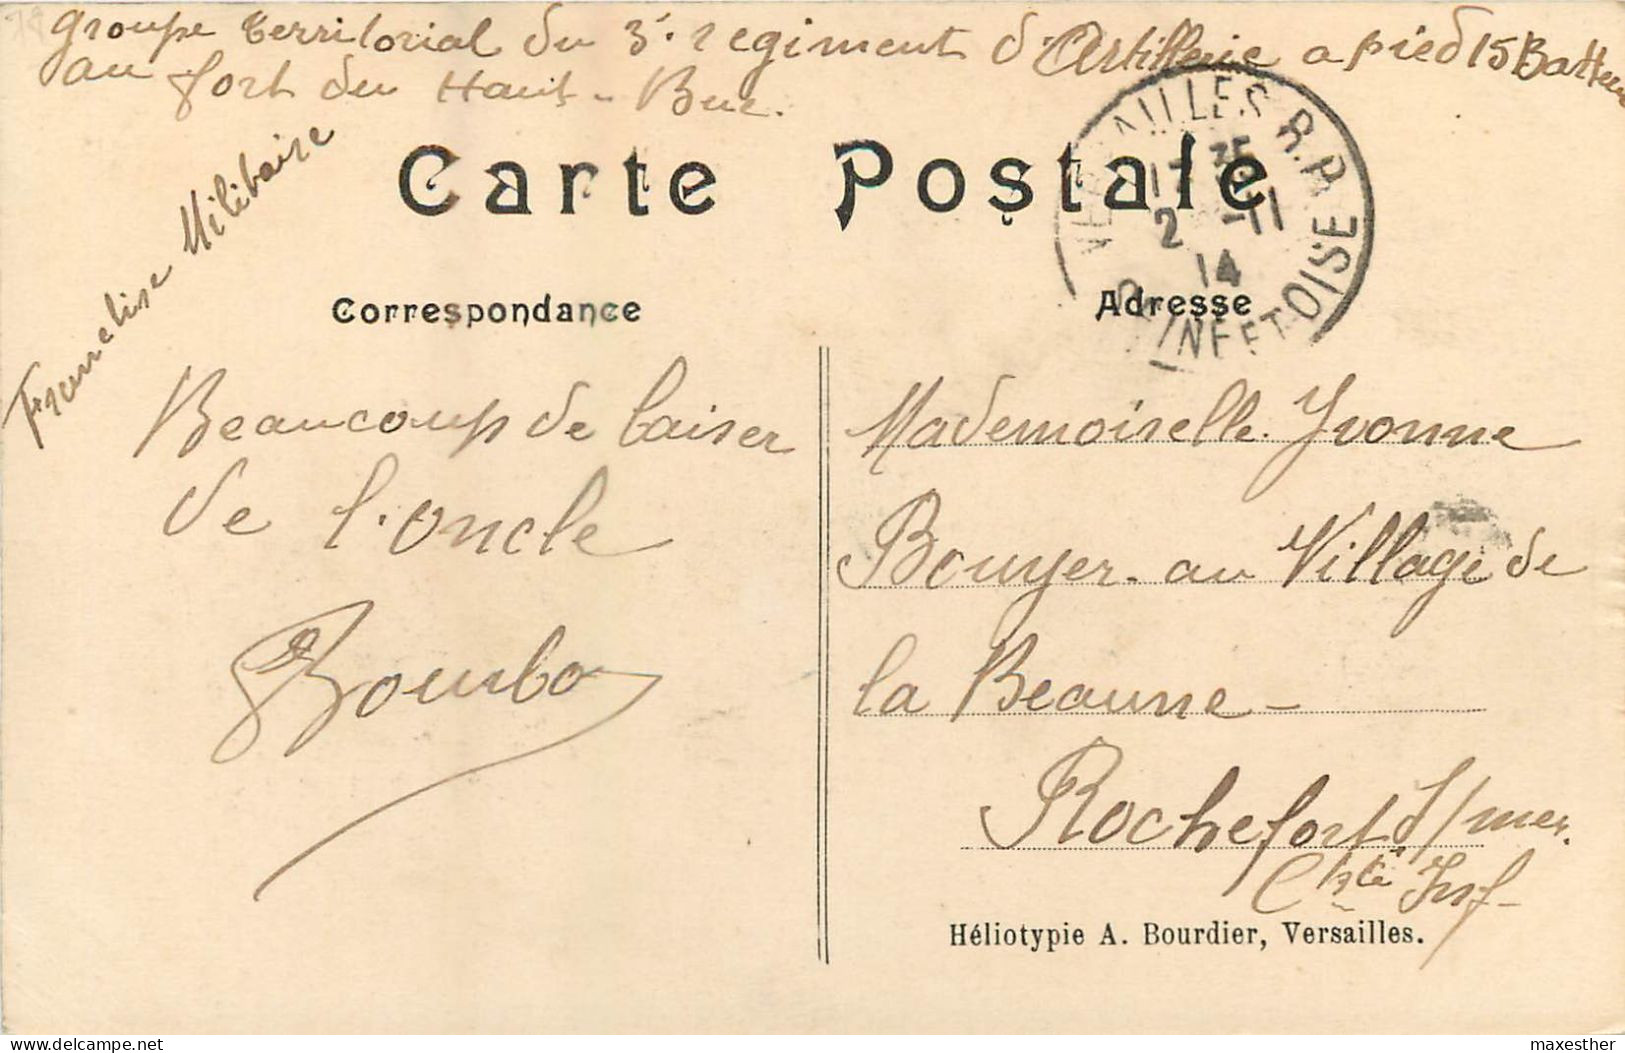 groupe territorial du 3e regiment d'Artillerie a pied 15 Batterie
au fort du Haut-Buc.
Franchise Militaire
Carte Postale
VERSAILLES R.P.
17 35
2 -11
14
SEINE ET OISE
Correspondance
Adresse
Beaucoup de baiser
de l'oncle
Mademoiselle Yvonne
Bouyer au Village de
la Beaune
Rochefort s/mer.
Chte Inf
Héliotypie A. Bourdier, Versailles.
delcampe.net
maxesther